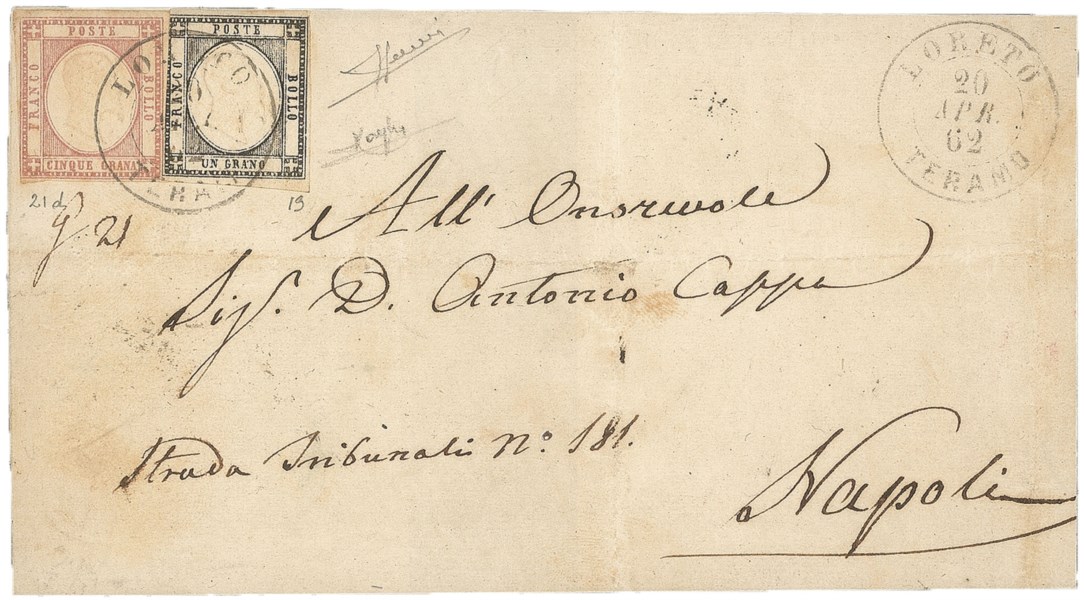 POSTE
FRANCO
BOLLO
CINQUE GRANA
POSTE
FRANCO
BOLLO
UN GRANO
LORETO
20
APR.
62
TERAMO
21 d
19
21
All' Onorevole
Sigr. D. Antonio Cappa
Strada Tribunali No. 181.
Napoli